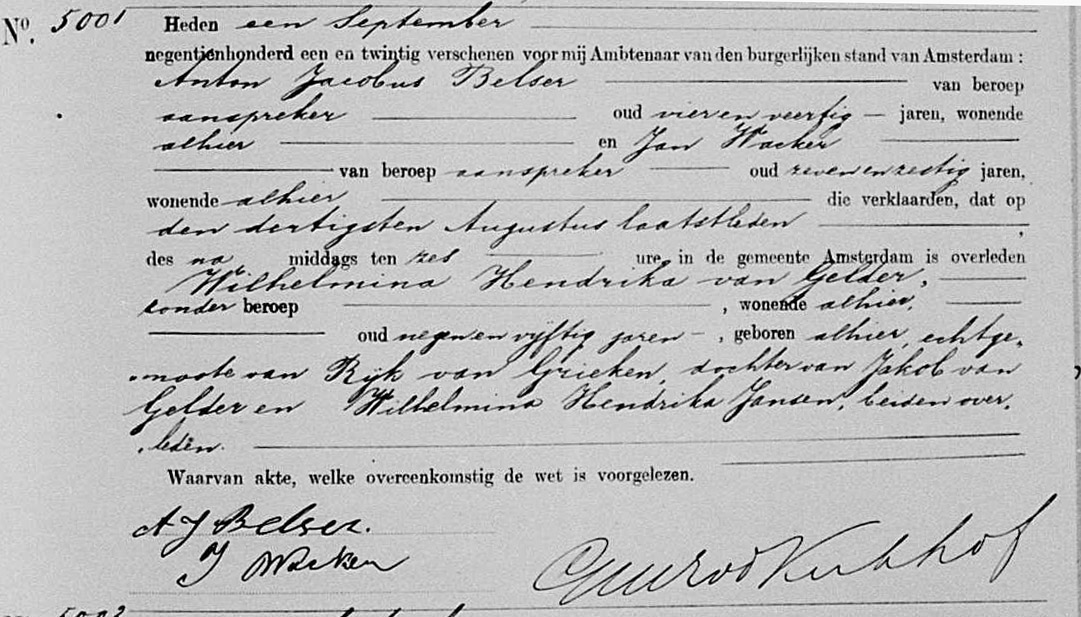 No. 5001 Heden een September
negentienhonderd een en twintig verschenen voor mij Ambtenaar van den burgerlijken stand van Amsterdam :
Anton Jacobus Belser van beroep
aanspreker oud vier en veertig jaren, wonende
alhier en Jan Wacker
van beroep aanspreker oud zeven en zestig jaren,
wonende alhier die verklaarden, dat op
den dertigsten Augustus laatstleden ,
des na middags ten zes ure, in de gemeente Amsterdam is overleden
Wilhelmina Hendrika van Gelder,
zonder beroep , wonende alhier,
oud negen en vijftig jaren , geboren alhier, echtge-
noote van Rijk van Grieken, dochter van Jakob van
Gelder en Wilhelmina Hendrika Jansen, beiden over-
leden.
Waarvan akte, welke overeenkomstig de wet is voorgelezen.
A J Belser.
J Wacker
5002